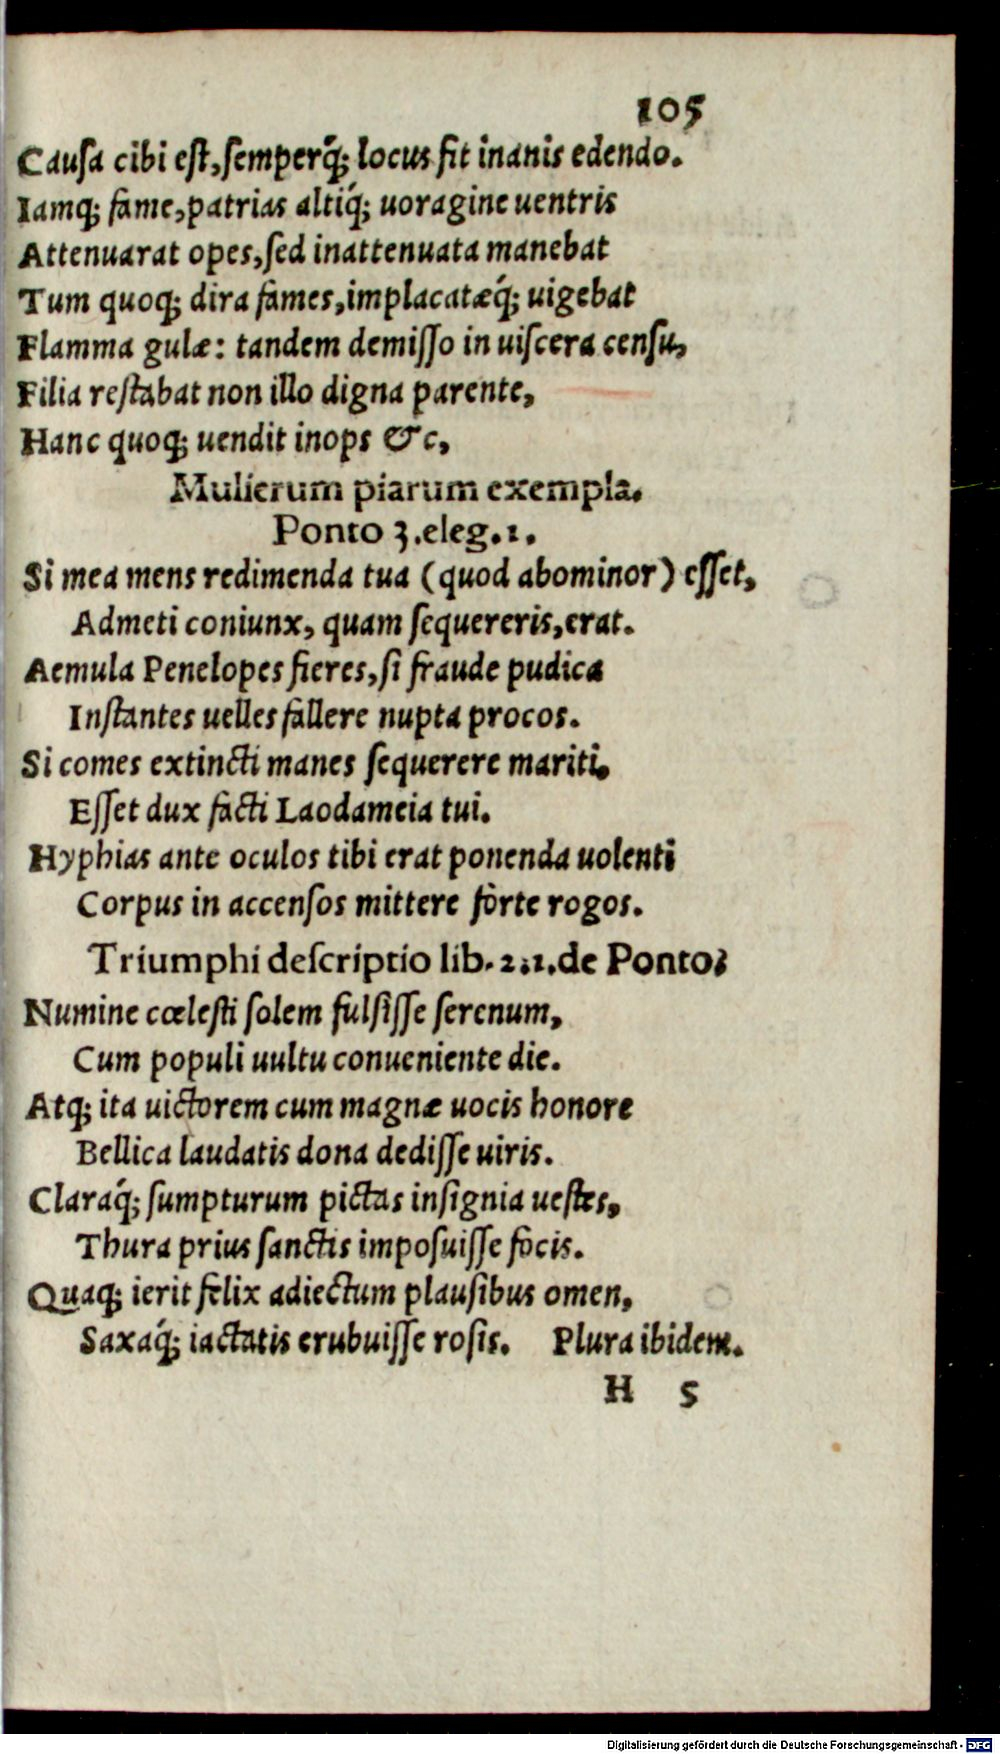 105
Cauſa cibi eſt, ſemperq́; locus fit inanis edendo.
Iamq; fame, patrias altiq́; uoragine uentris
Attenuarat opes, ſed inattenuata manebat
Tum quoq; dira fames, implacatæq́; uigebat
Flamma gulæ: tandem demiſſo in uiſcera cenſu,
Filia reſtabat non illo digna parente,
Hanc quoq; uendit inops &c,
Mulierum piarum exempla.
Ponto 3. eleg. 1.
Si mea mens redimenda tua (quod abominor) eſſet,
Admeti coniunx, quam ſequereris, erat.
Aemula Penelopes fieres, ſi fraude pudica
Inſtantes uelles fallere nupta procos.
Si comes extincti manes ſequerere mariti.
Eſſet dux facti Laodameia tui.
Hyphias ante oculos tibi erat ponenda uolenti
Corpus in accenſos mittere forte rogos.
Triumphi deſcriptio lib. 2.1. de Ponto.
Numine cœleſti ſolem fulſiſſe ſerenum,
Cum populi uultu conueniente die.
Atq; ita uictorem cum magnæ uocis honore
Bellica laudatis dona dediſſe uiris.
Claraq́; ſumpturum pictas inſignia ueſtes,
Thura prius ſanctis impoſuiſſe focis.
Quaq; ierit felix adiectum plauſibus omen,
Saxaq́; iactatis erubuiſſe roſis. Plura ibidem.
H 5
Digitalisierung gefördert durch die Deutsche Forschungsgemeinschaft - DFG